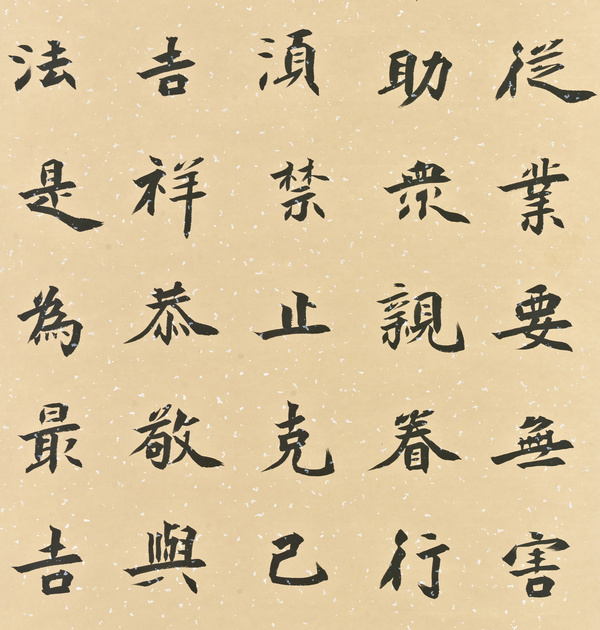 從業要無害
助衆親眷行
須禁止克己
吉祥恭敬與
法是為最吉